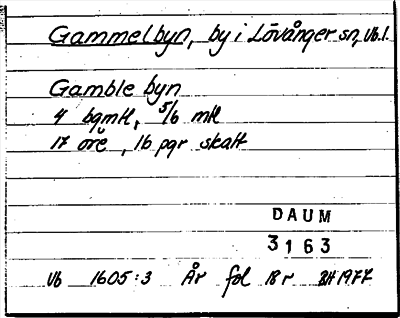 Gammelbyn, by i Lövånger sn, Vb.l.
Gamble byn
4 bgmtl, 5/6 mtl
17 öre, 16 pgr skatt
DAUM
3163
Vb 1605:3 År fol 18 r 1977